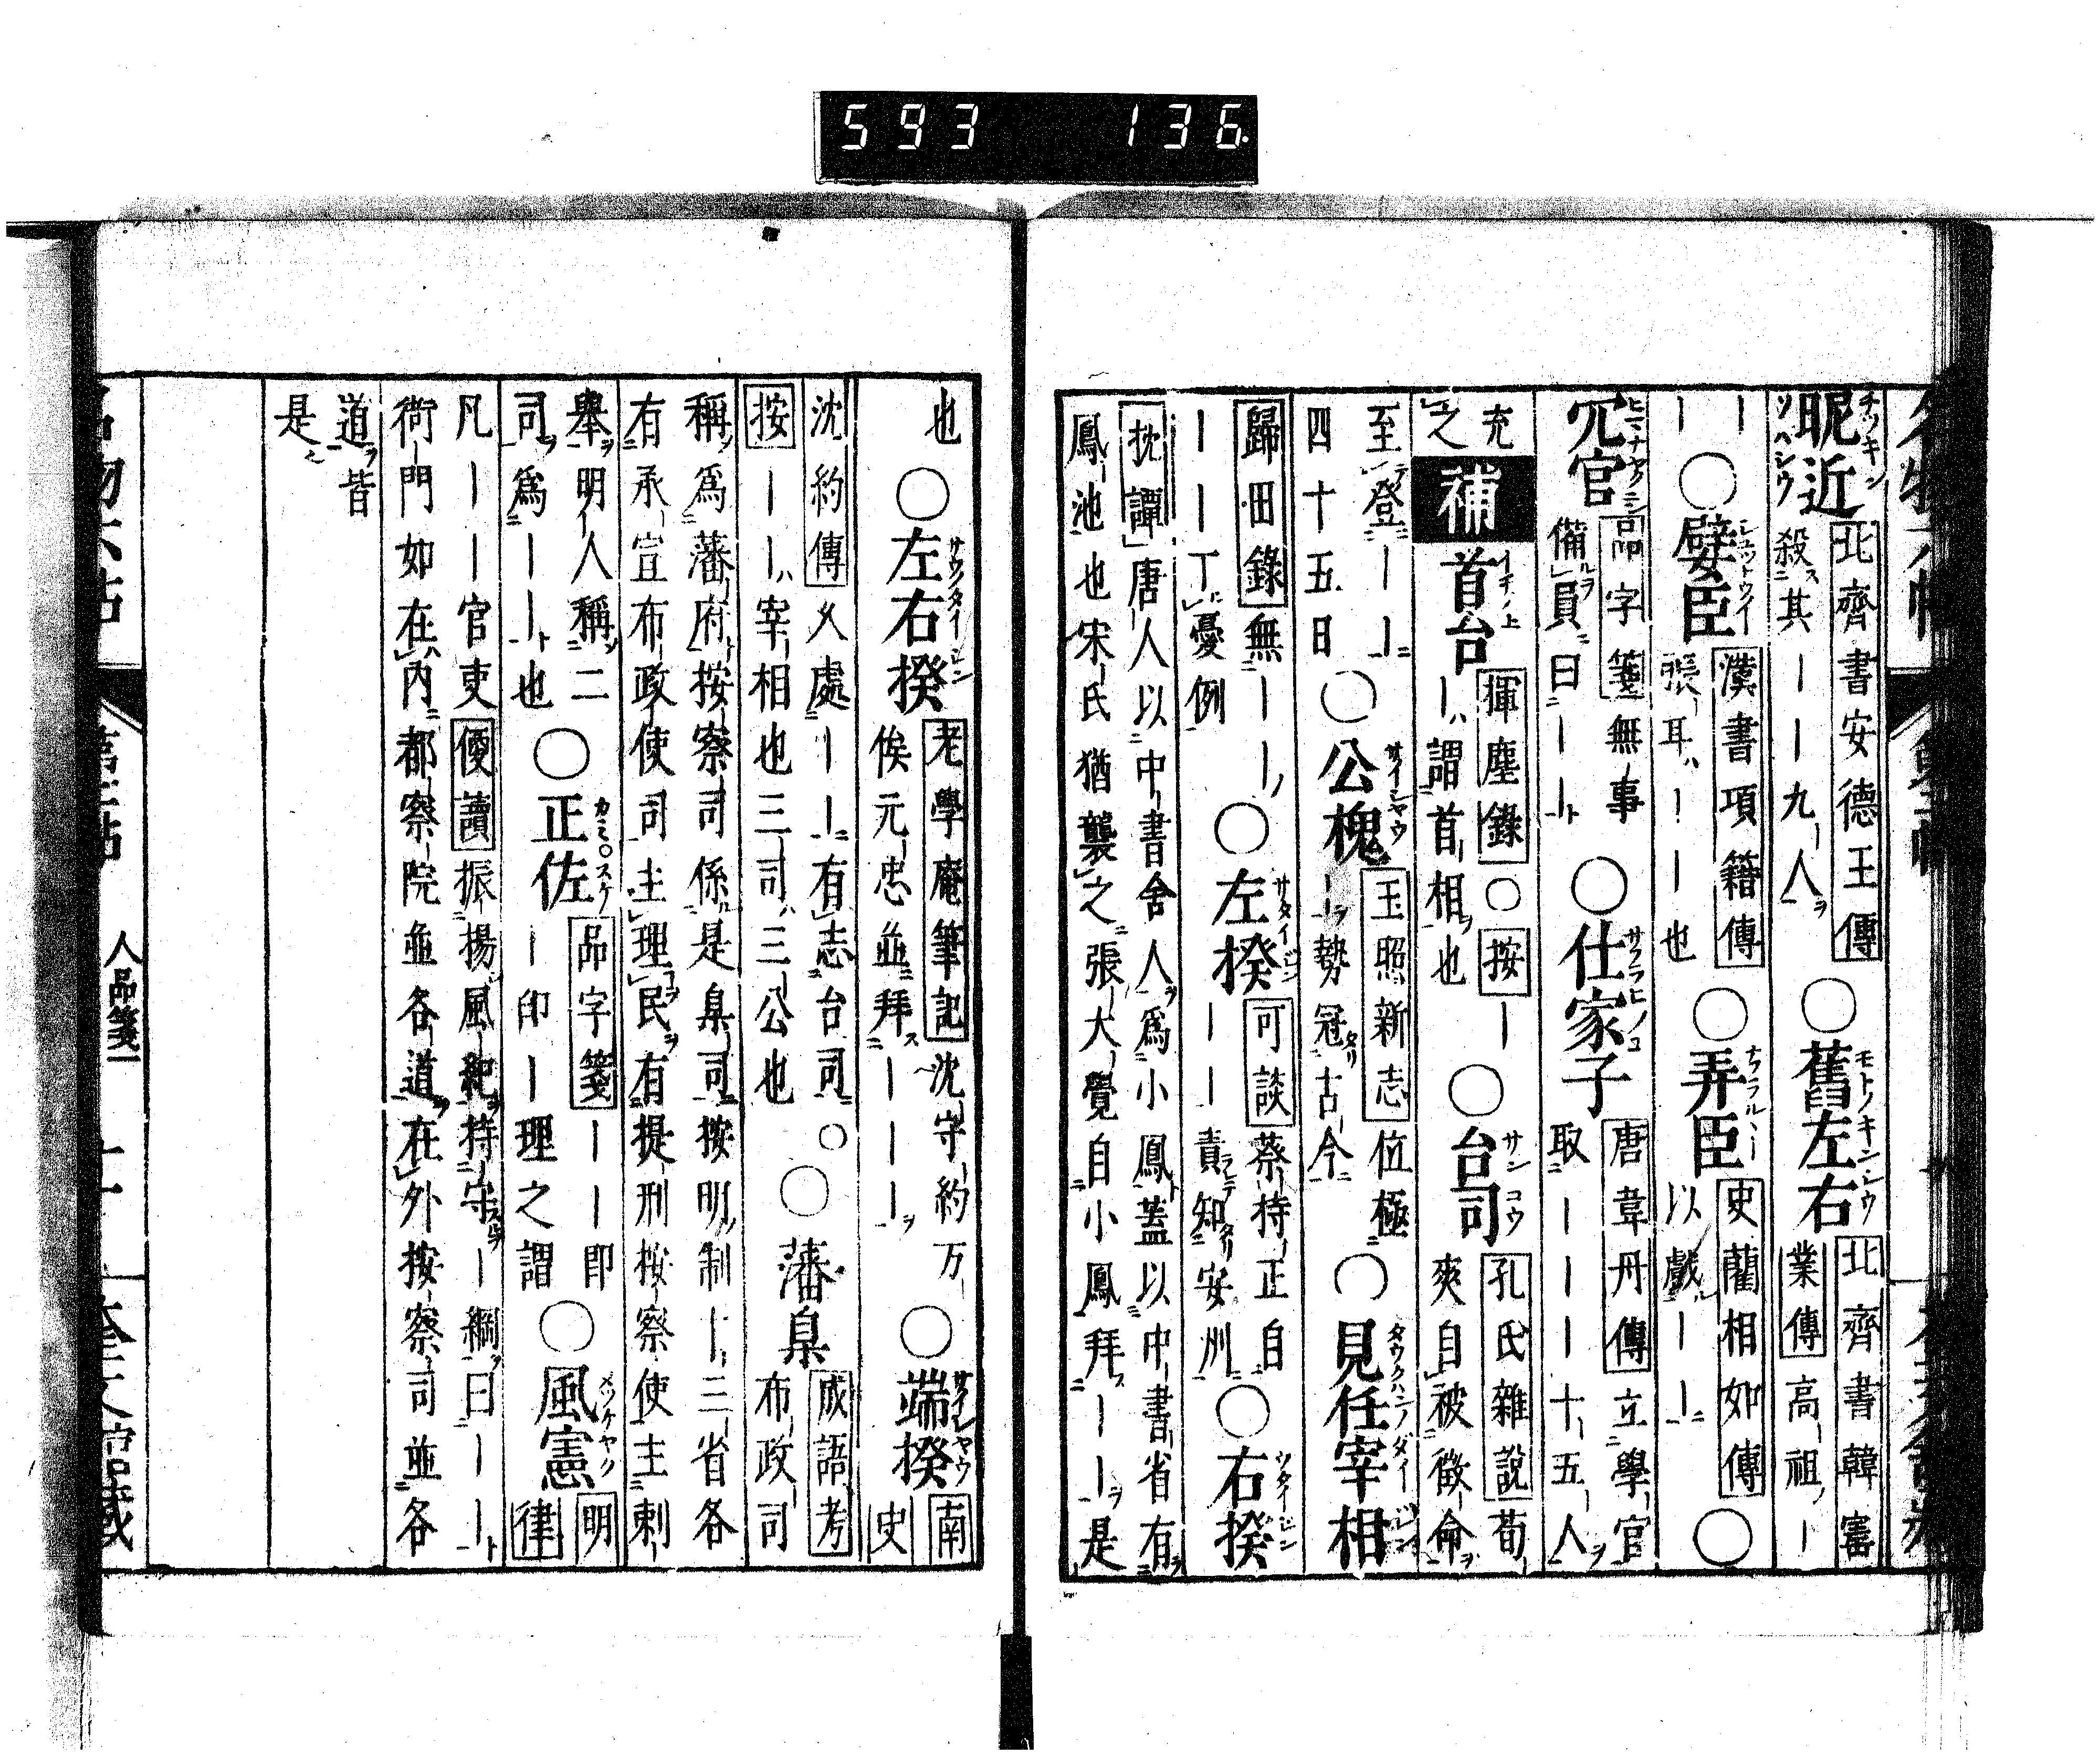 名物六帖
昵近 チッキン ソハシウ
北齊書安德王傳
殺其――九人
○舊左右 モトノキンシウ
北齊書韓寳
業傳高祖―
―
―
○嬖臣
漢書項籍傳
張耳――也
○弄臣
史藺相如傳
以戯――
○冗官
品字箋無事
備員曰――
○仕家子
唐韋丹傳立學官
取―――十五人
充
之
補
首台 イチノ上
揮麈錄○按―
―謂首相也
○台司 サンコウ
孔氏雜說荀
爽自被徵命
至登――
四十五日
○公槐 サイシャウ
玉照新志位極
―勢冠古今
○見任宰相
歸田錄無――
――丁憂例
○左揆 サダイジン
可談蔡持正自
―――責知安州
○右揆 ウダイジン
枕譚唐人以中書舍人爲小鳳蓋以中書省有
鳳池也宋氏猶襲之張大覺自小鳳拜――是
也
○左右揆
老學庵筆記沈守約万
俟元忠並拜―――
○端揆
南
史
沈約傳乆處――有志台司○
按――宰相也三司三公也
○藩臬
成語考
布政司
稱爲藩府按察司係是臬司按明制――三省各
有承宣布政使司主理民有提刑按察使主刺
舉明人稱二
司爲――也
○正佐 カミ○スケ
品字箋――即
―印―理之謂
○風憲 メツケヤク
明
律
凡――官吏優讀振揚風紀持守―綱曰――
衙門如在内都察院並各道在外按察司並各
道皆
是
名物六帖
第二帖
人品箋一
593 136